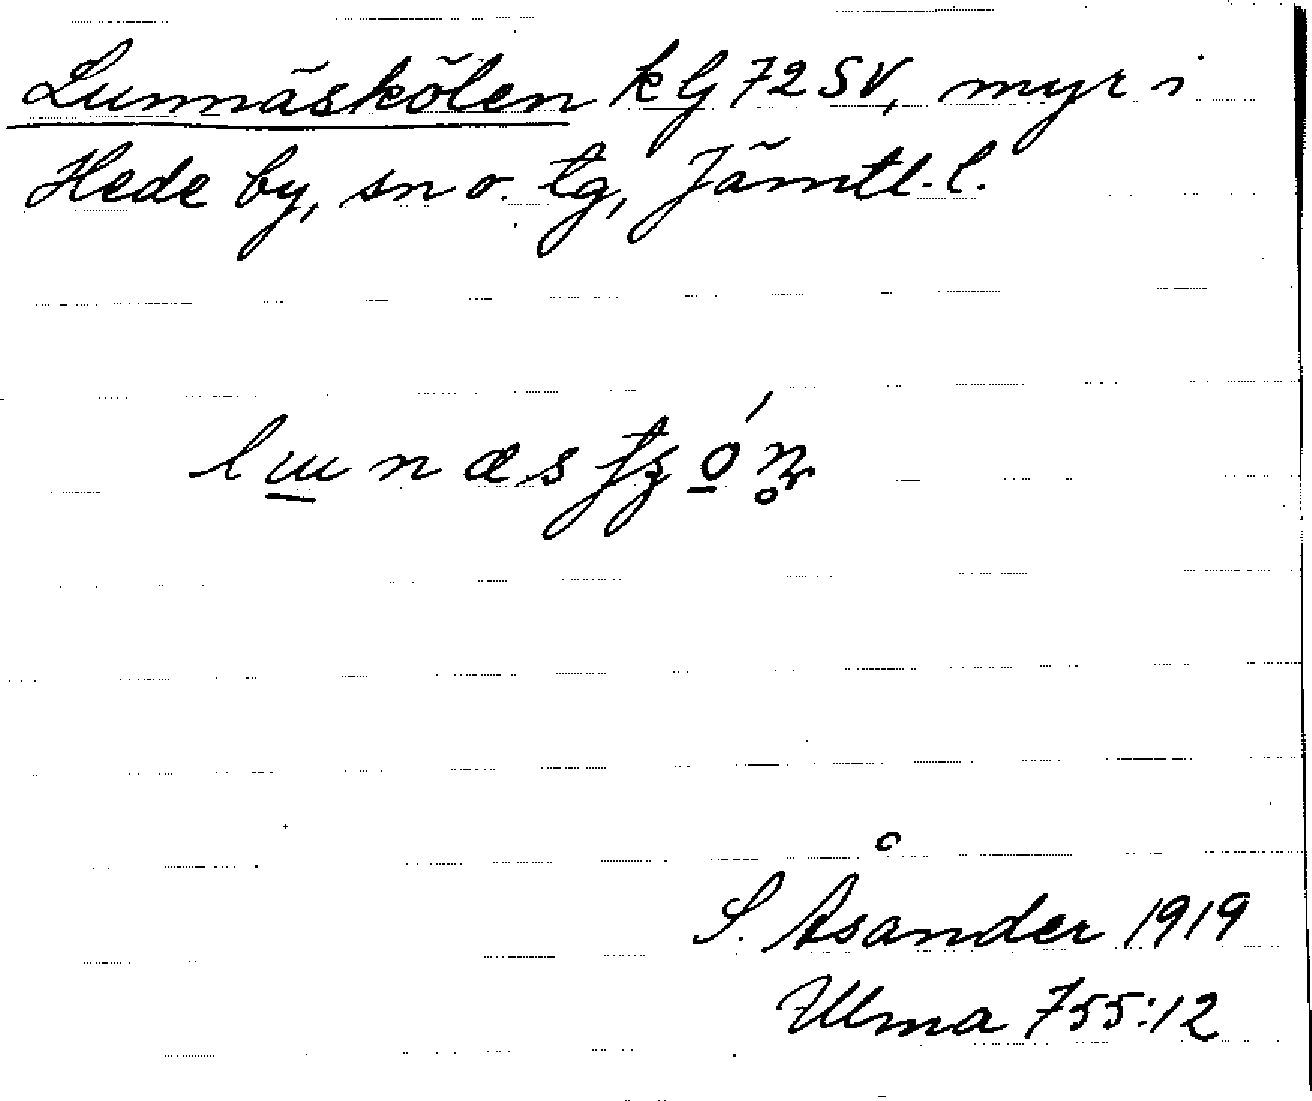 Lunnäskölen kG 72 SV, myr i
Hede by, sn o. tg, Jämtl. l.
S. Åsander 1919
Ulma 755:12